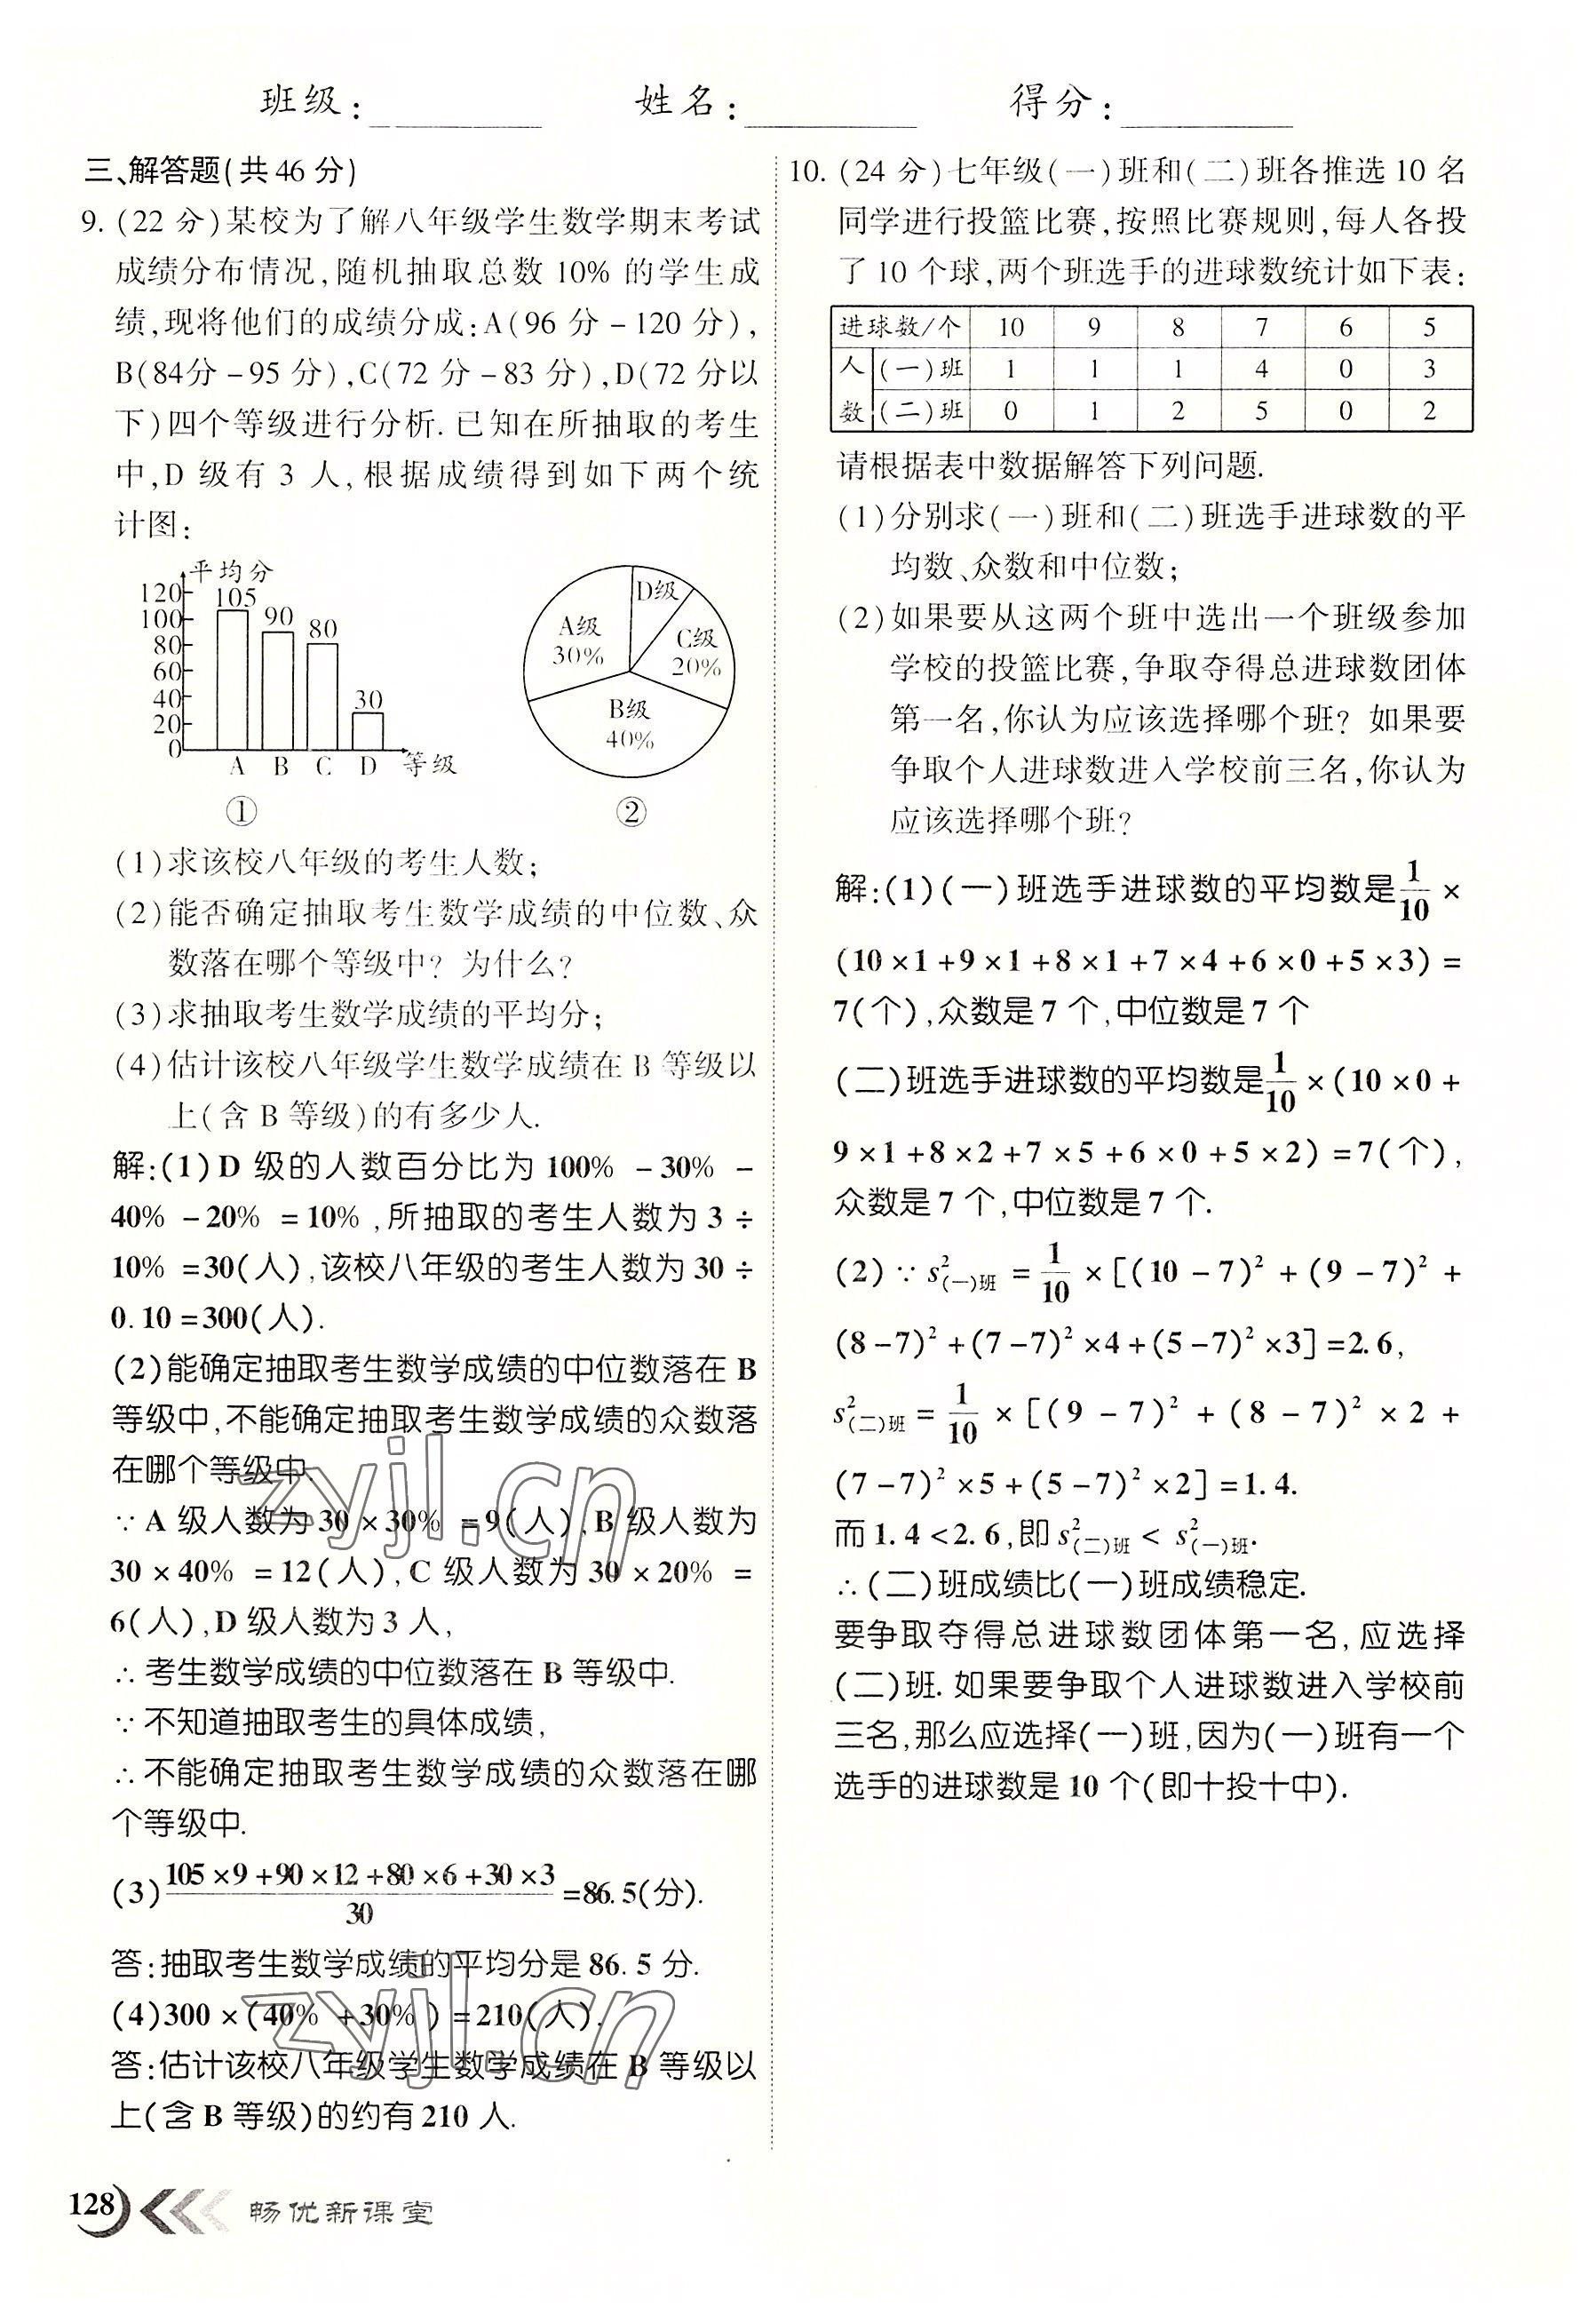 班级:
姓名:
得分:
三、解答题(共46分)
9.(22分)某校为了解八年级学生数学期末考试
成绩分布情况,随机抽取总数10%的学生成
绩,现将他们的成绩分成:A(96分-120分),
B(84分-95分),C(72分-83分),D(72分以
下)四个等级进行分析.已知在所抽取的考生
中,D级有3人,根据成绩得到如下两个统
计图:
平均分
120
100
80
60
40
20
0
105
90
80
30
A B C D 等级
①
D级
A级
30%
C级
20%
B级
40%
②
(1)求该校八年级的考生人数;
(2)能否确定抽取考生数学成绩的中位数、众
数落在哪个等级中?为什么?
(3)求抽取考生数学成绩的平均分;
(4)估计该校八年级学生数学成绩在B等级以
上(含B等级)的有多少人.
解:(1)D级的人数百分比为100%-30%-
40%-20%=10%,所抽取的考生人数为3÷
10%=30(人),该校八年级的考生人数为30÷
0.10=300(人).
(2)能确定抽取考生数学成绩的中位数落在B
等级中,不能确定抽取考生数学成绩的众数落
在哪个等级中.
∵A级人数为30×30%=9(人),B级人数为
30×40%=12(人),C级人数为30×20%=
6(人),D级人数为3人,
∴考生数学成绩的中位数落在B等级中.
∵不知道抽取考生的具体成绩,
∴不能确定抽取考生数学成绩的众数落在哪
个等级中.
(3)(105×9+90×12+80×6+30×3)/30=86.5(分).
答:抽取考生数学成绩的平均分是86.5分.
(4)300×(40%+30%)=210(人).
答:估计该校八年级学生数学成绩在B等级以
上(含B等级)的约有210人.
10.(24分)七年级(一)班和(二)班各推选10名
同学进行投篮比赛,按照比赛规则,每人各投
了10个球,两个班选手的进球数统计如下表:
进球数/个 10 9 8 7 6 5
人 (一)班 1 1 1 4 0 3
数 (二)班 0 1 2 5 0 2
请根据表中数据解答下列问题.
(1)分别求(一)班和(二)班选手进球数的平
均数、众数和中位数;
(2)如果要从这两个班中选出一个班级参加
学校的投篮比赛,争取夺得总进球数团体
第一名,你认为应该选择哪个班?如果要
争取个人进球数进入学校前三名,你认为
应该选择哪个班?
解:(1)(一)班选手进球数的平均数是1/10×
(10×1+9×1+8×1+7×4+6×0+5×3)=
7(个),众数是7个,中位数是7个
(二)班选手进球数的平均数是1/10×(10×0+
9×1+8×2+7×5+6×0+5×2)=7(个),
众数是7个,中位数是7个.
(2)∵s²(一)班=1/10×[(10-7)²+(9-7)²+
(8-7)²+(7-7)²×4+(5-7)²×3]=2.6,
s²(二)班=1/10×[(9-7)²+(8-7)²×2+
(7-7)²×5+(5-7)²×2]=1.4.
而1.4<2.6,即s²(二)班<s²(一)班.
∴(二)班成绩比(一)班成绩稳定.
要争取夺得总进球数团体第一名,应选择
(二)班.如果要争取个人进球数进入学校前
三名,那么应选择(一)班,因为(一)班有一个
选手的进球数是10个(即十投十中).
zyjl.cn
zyjl.cn
128 畅优新课堂